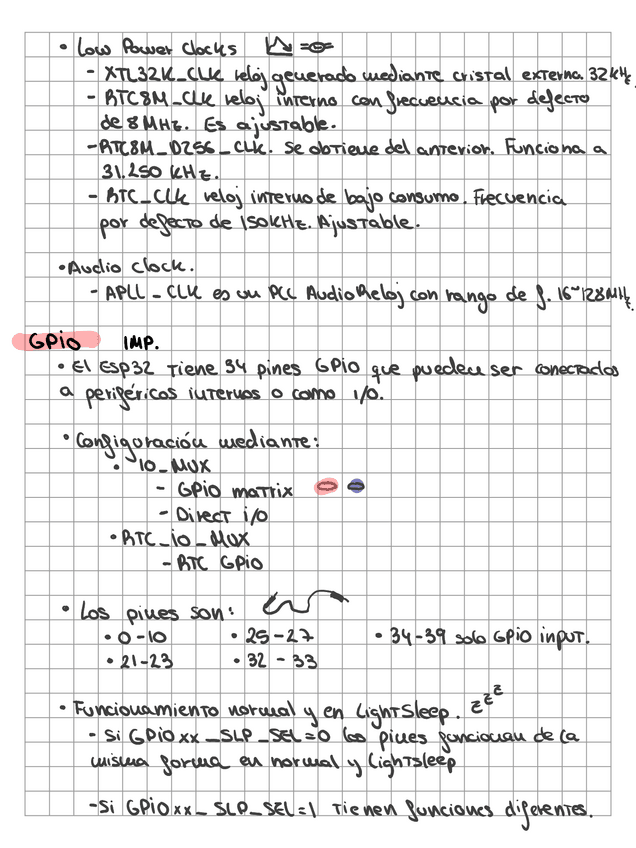 • Low Power Clocks
- XTL32K_CLK reloj generado mediante cristal externa 32kHz.
- RTC8M_CLK reloj interno con frecuencia por defecto
de 8MHz. Es ajustable.
- RTC8M_D256_CLK. Se obtiene del anterior. Funciona a
31.250 KHz.
- RTC_CLK reloj interno de bajo consumo. Frecuencia
por defecto de 150KHz. Ajustable.
• Audio clock.
- APLL_CLK es un PLL Audio Reloj con rango de f. 16~128MHz.
GPio IMP.
• El ESP32 tiene 34 pines GPIO que pueden ser conectados
a periféricos internos o como I/O.
• Configuración mediante:
• IO_MUX
- GPIO matrix
- Direct i/o
• RTC_io_MUX
- RTC GPIO
• Los pines son:
• 0-10 • 25-27 • 34-39 solo GPIO input.
• 21-23 • 32 - 33
• Funcionamiento normal y en LightSleep. zzz
- Si GPIOxx_SLP_SEL=0 los pines funcionan de la
misma forma en normal y Lightsleep
- Si GPIOxx_SLP_SEL=1 tienen funciones diferentes.